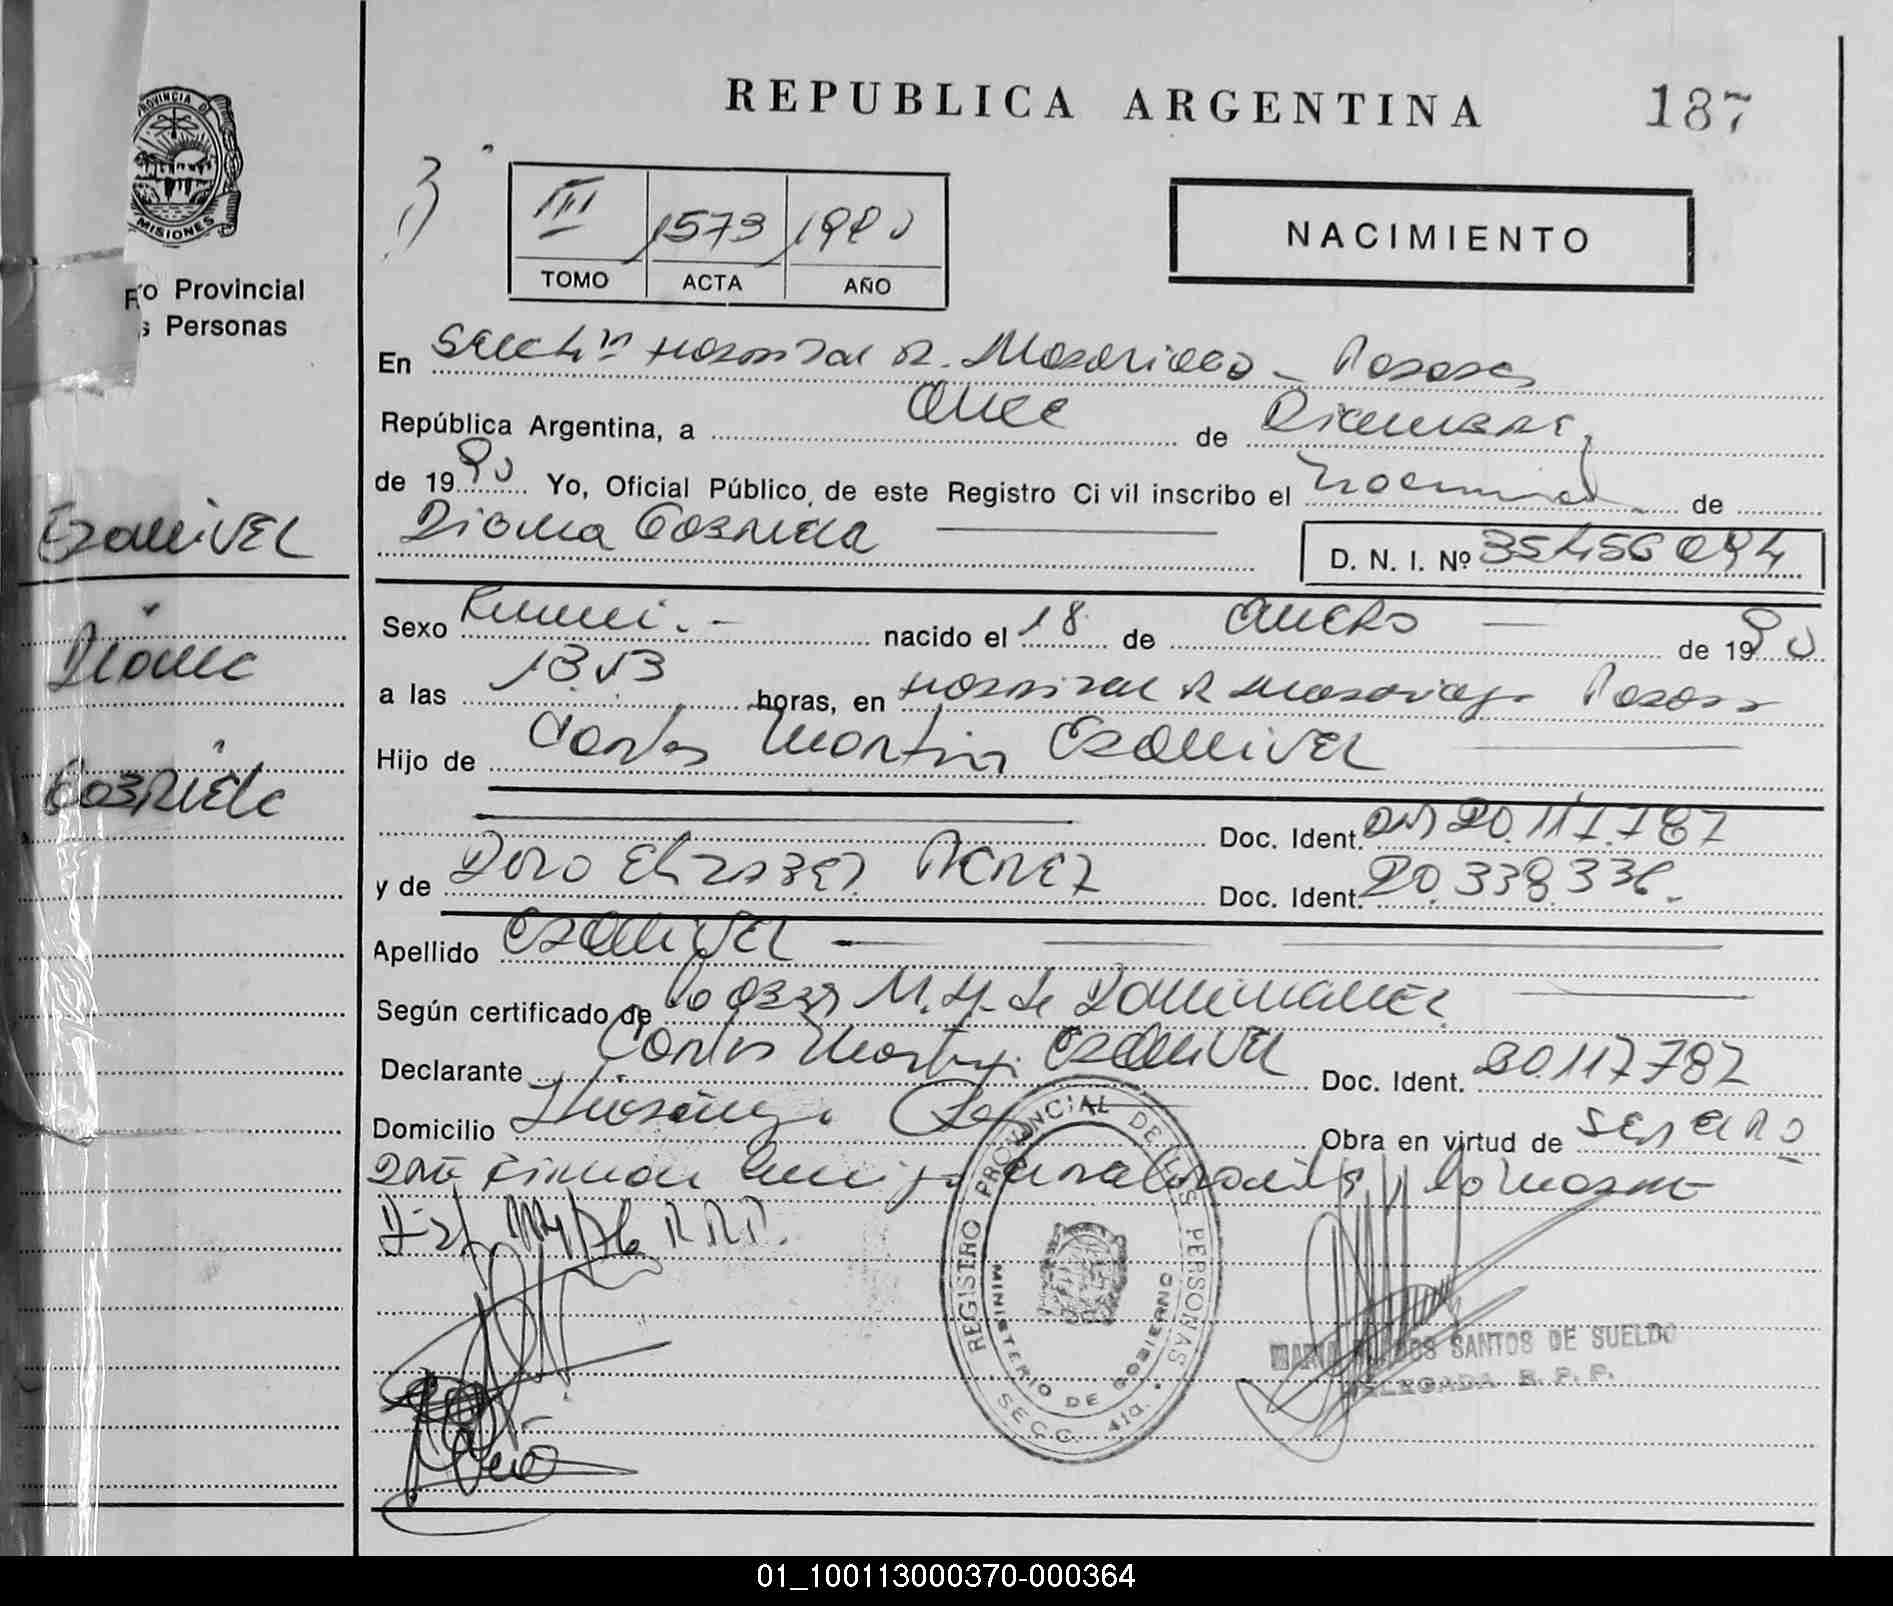 REPUBLICA ARGENTINA
187
PROVINCIA DE
MISIONES
ro Provincial
s Personas
III 1573 1990
TOMO ACTA AÑO
NACIMIENTO
En Secc 4ta Hospital R. Madariaga - Posadas
República Argentina, a once de Diciembre,
de 1990 Yo, Oficial Público de este Registro Civil inscribo el nacimiento de
Diana Gabriela
D. N. I. Nº 35456094
Esquivel
Diana
Gabriela
Sexo Femeni.- nacido el 18 de enero de 1990
a las 13 horas, en Hospital R Madariaga Posadas
Hijo de Carlos Martin Esquivel
Doc. Ident. DNI 20.117.787
y de Dora Elizabet Perez Doc. Ident. 20.338.336.
Apellido Esquivel
Según certificado de M. de Dominguez
Declarante Carlos Martin Esquivel Doc. Ident. 20.117.787
Domicilio Obra en virtud de ser
R.P.P.
REGISTRO PROVINCIAL DE LAS PERSONAS
MINISTERIO DE GOBIERNO
SECC. 4ta.
SANTOS DE SUELDO
DELEGADA R. P. P.
01_100113000370-000364